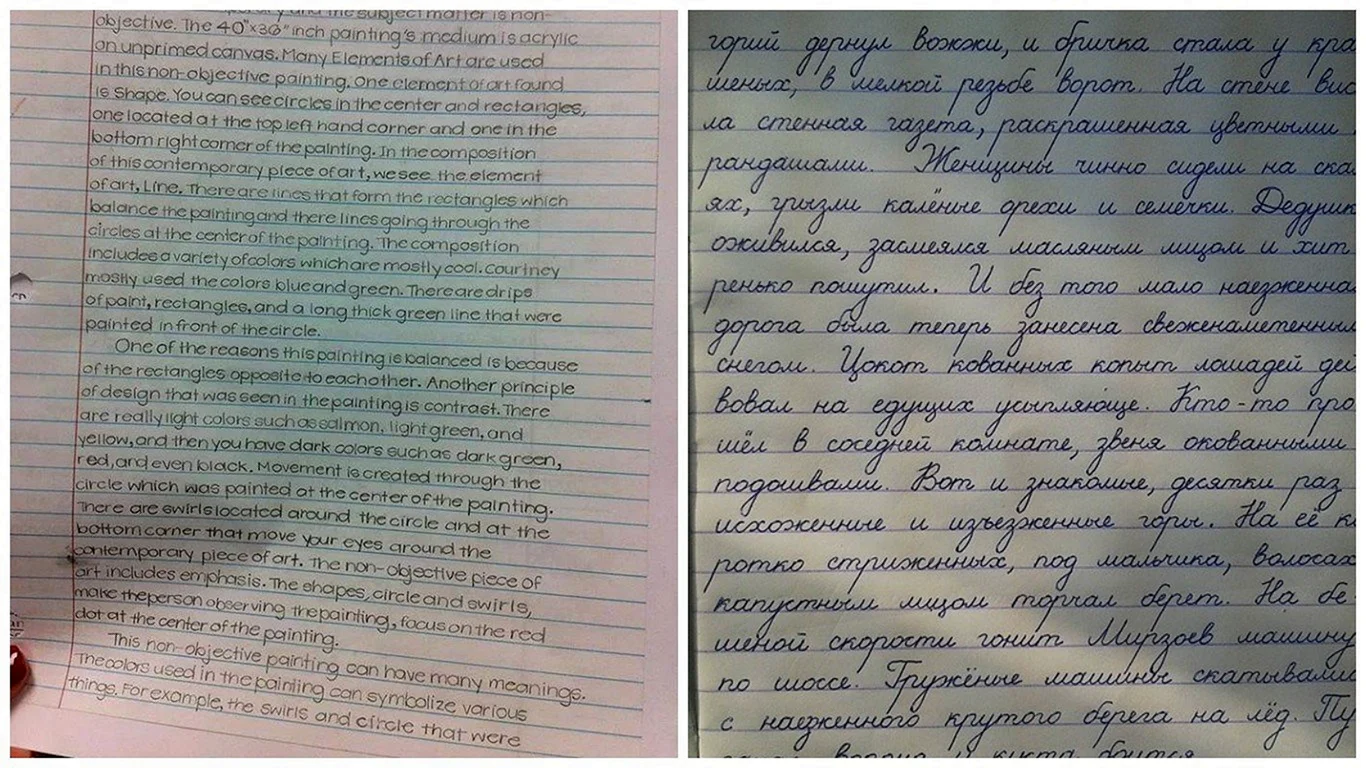 objective. The 40"x30" inch painting's medium is acrylic
on unprimed canvas. Many Elements of Art are used
in this non-objective painting. One element of art found
is Shape. You can see circles in the center and rectangles,
one located at the top left hand corner and one in the
bottom right corner of the painting. In the composition
of this contemporary piece of art, we see the element
of art, Line. There are lines that form the rectangles which
balance the painting and there lines going through the
circles at the center of the painting. The composition
includes a variety of colors which are mostly cool. Courtney
mostly used the colors blue and green. There are drips
of paint, rectangles, and a long thick green line that were
painted in front of the circle.
One of the reasons this painting is balanced is because
of the rectangles opposite to each other. Another principle
of design that was seen in the painting is contrast. There
are really light colors such as salmon, light green, and
yellow, and then you have dark colors such as dark green,
red, and even black. Movement is created through the
circle which was painted at the center of the painting.
There are swirls located around the circle and at the
bottom corner that move your eyes around the
contemporary piece of art. The non-objective piece of
art includes emphasis. The shapes, circle and swirls,
make the person observing the painting, focus on the red
dot at the center of the painting.
This non-objective painting can have many meanings.
The colors used in the painting can symbolize various
things. For example, the swirls and circle that were
горий дернул вожжи, и бричка стала у кра
шеных, в мелкой резьбе ворот. На стене вис
ла стенная газета, раскрашенная цветными
рандашами. Женщины чинно сидели на ска
ях, грызли калёные орехи и семечки. Дедушк
оживился, засмеялся масляным лицом и хит
ренько пошутил. И без того мало наезженна
дорога была теперь занесена свеженаметенным
снегом. Цокот кованных копыт лошадей дей
вовал на едущих усыпляюще. Кто-то про
шёл в соседней комнате, звеня окованными
подошвами. Вот и знакомые, десятки раз
исхоженные и изъезженные горы. На её к
ротко стриженных, под мальчика, волосах
капустным лицом торчал берет. На бе-
шеной скорости гонит Мирзоев машину
по шоссе. Гружёные машины скатывалис
с наезженного крутого берега на лёд. Пу